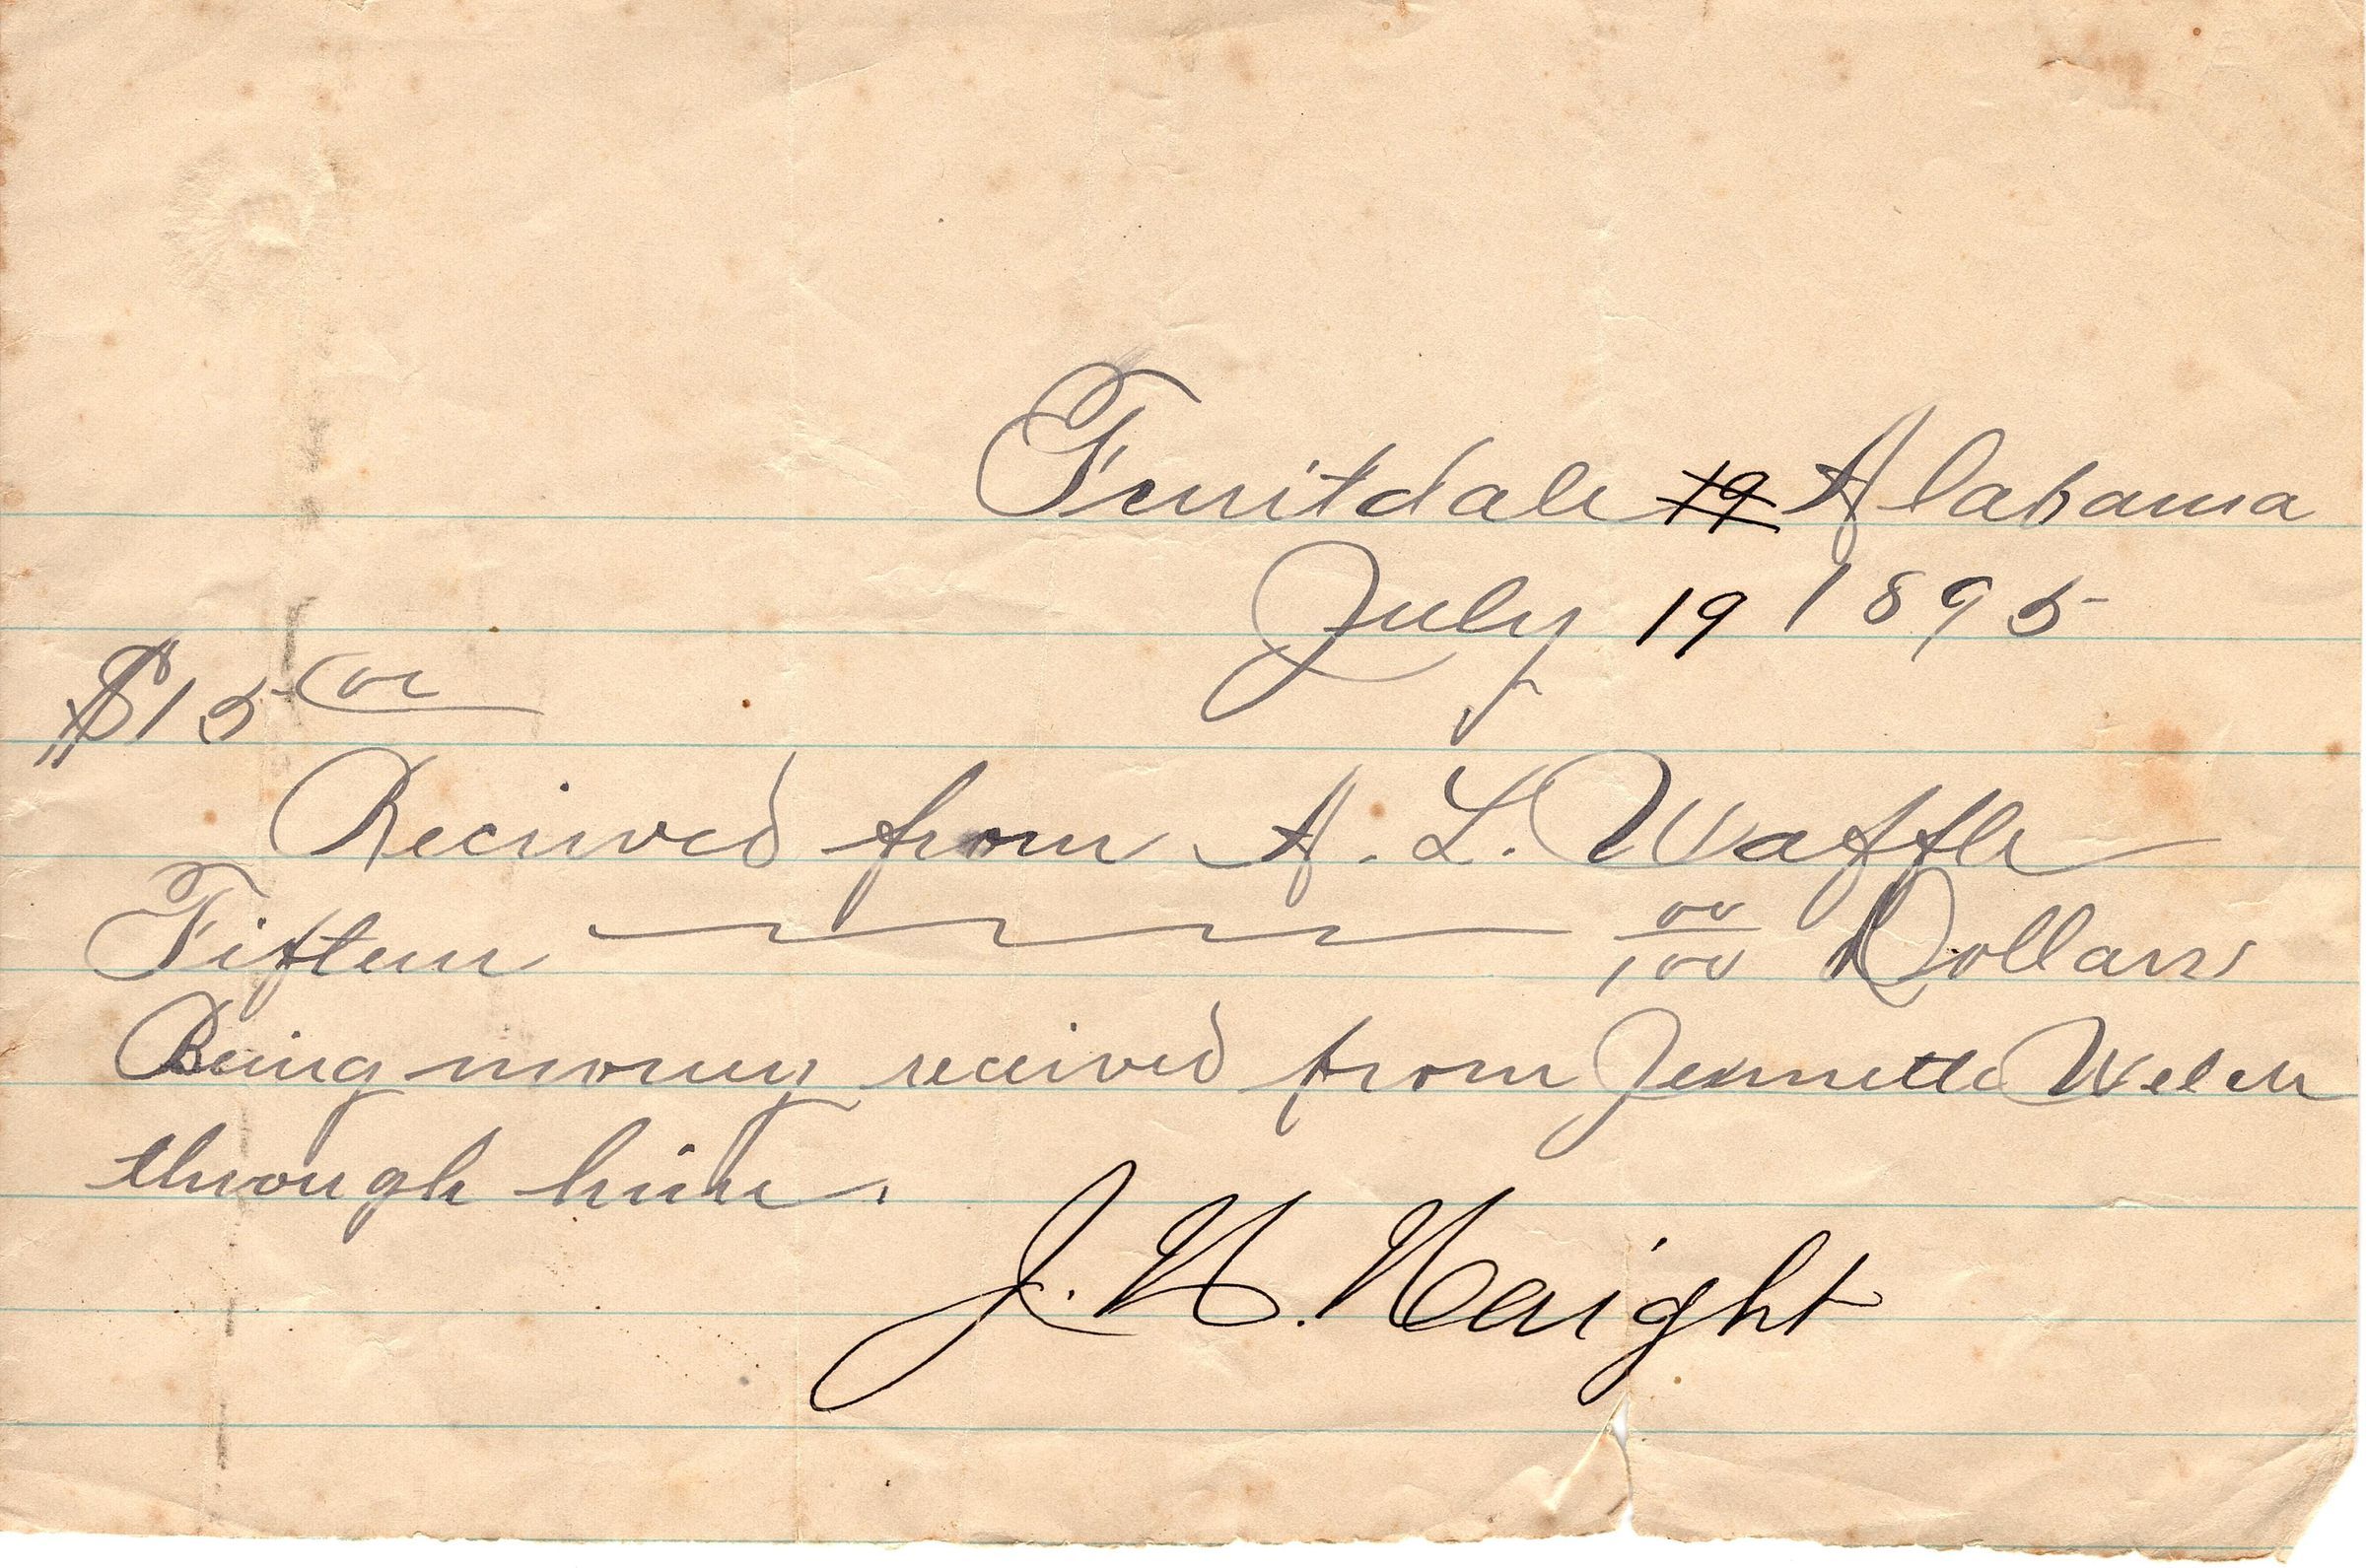 Fruitdale 19 Alabama
July 19 1895
$15 00
Received from A. L. Waffle
Fifteen 00/100 Dollars
Being money received from Jennette Welch
through him.
J. H. Haight